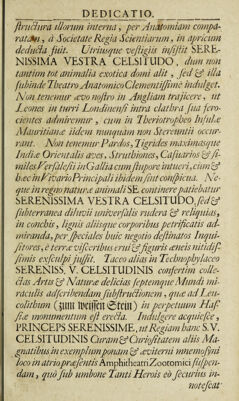 DEDICATIO.
structura illorum interna, per Anatomiam compa-
ratam, à Societate Regiâ Scientiarum, in apricum
deducta fuit. Utriusque vestigiis insistit SERE-
NISSIMA VESTRA CELSITUDO, dum non
tantùm tot animalia exotica domi alit, sed & illa
subinde Theatro Anatomico Clementissimè indulget.
Non tenemur ævo nostro in Angliam trajicere, ut
Leones in turri Londinensi intra clathra sua fero-
cientes admiremur, cum in Theriotropheo Insulæ
Mauritianæ iidem nunquam non Stereunti occur-
rant. Non tenemur Pardos, Tigrides maximasque
Indiæ Orientalis aves, Struthiones, Casuarios & si-
miles Versalesii in Gallia cum stupore intueri, cum &
hæc in Vivario Principali ibidem sint conspicua. Ne-
que in regno naturæ animali SE continere patiebatur
SERENISSIMA VESTRA CELSITUDO, sed &
subterranea diluvii universalis rudera & reliquias,
in conchis, lignis aliisque corporibus petrificatis ad-
miranda, per speciales huic negotio destinatos Inqui-
sitores, è terræ visceribus erui & figuris æneis nitidis-
simis exsculpi jussit. Taceo alias in Technophylaceo
SERENISS. V. CELSITUDINIS confertim colle-
ctas Artis & Naturæ delicias septemque Mundi mi-
raculis adscribendam substructionem, quæ ad Leu-
colithum (zum weissen Stein) in perpetuum Has-
siæ monumentum est erecta. Indulgere acquiesce,
PRINCEPS SERENISSIME, ut Regiam hanc S.V.
CELSITUDINIS Curam & Curiositatem aliis Ma-
gnatibus in exemplum ponam & æviterni mnemosyni
loco in atrio præsentis Amphitheatri Zootomici suspen-
dam, quò sub umbone Tanti Herois eò securius in-
notescat